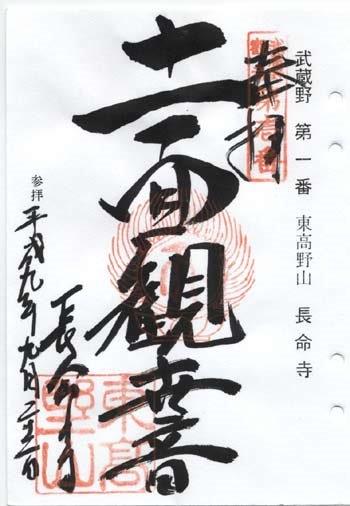 武蔵野 第一番 東高野山 長命寺
奉拝
十一面観世音
長命寺
東高野山
参拝 平成